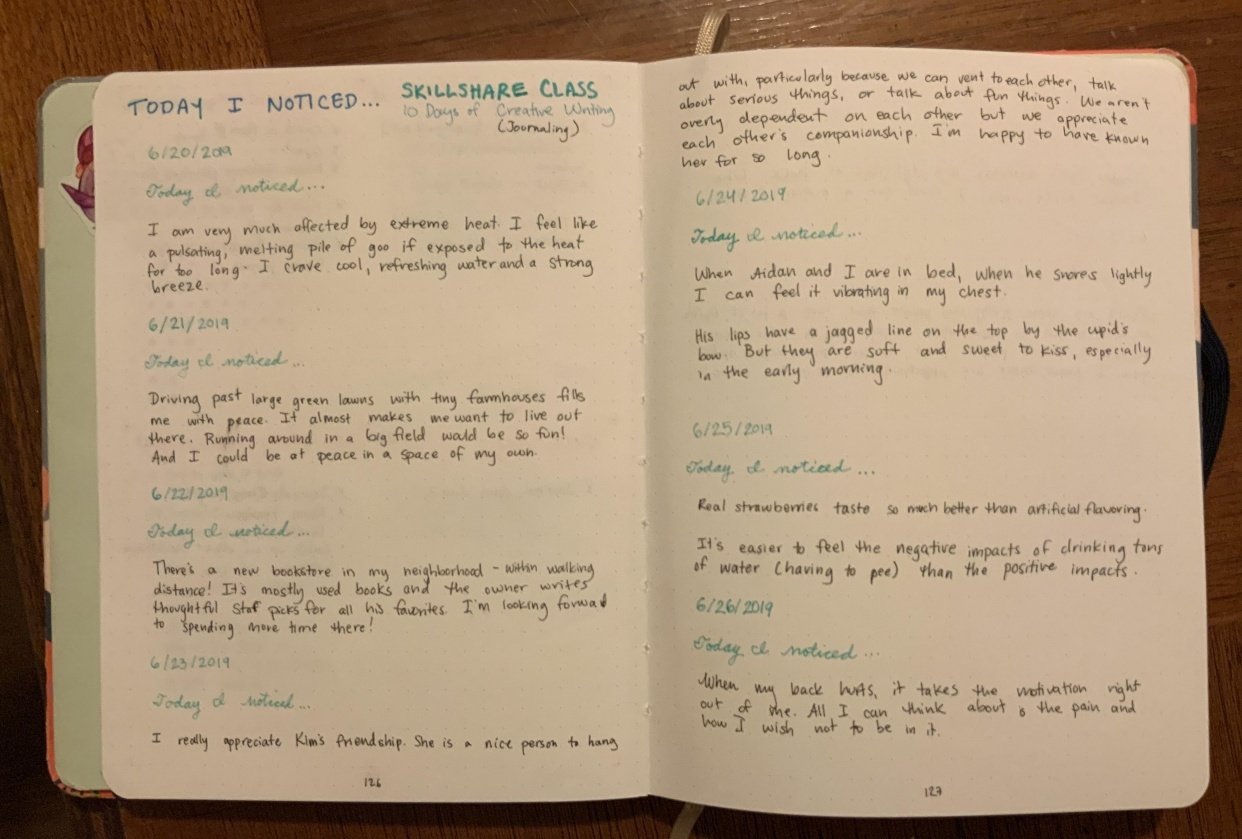 TODAY I NOTICED...
SKILLSHARE CLASS
10 Days of Creative Writing
(Journaling)
6/20/2019
Today I noticed...
I am very much affected by extreme heat. I feel like
a pulsating, melting pile of goo if exposed to the heat
for too long. I crave cool, refreshing water and a strong
breeze.
6/21/2019
Today I noticed...
Driving past large green lawns with tiny farmhouses fills
me with peace. It almost makes me want to live out
there. Running around in a big field would be so fun!
And I could be at peace in a space of my own.
6/22/2019
Today I noticed...
There's a new bookstore in my neighborhood - within walking
distance! It's mostly used books and the owner writes
thoughtful staf picks for all his favorites. I'm looking forward
to spending more time there!
6/23/2019
Today I noticed...
I really appreciate Kim's friendship. She is a nice person to hang
126
out with, particularly because we can vent to each other, talk
about serious things, or talk about fun things. We aren't
overly dependent on each other but we appreciate
each other's companionship. I'm happy to have known
her for so long.
6/24/2019
Today I noticed...
When Aidan and I are in bed, when he snores lightly
I can feel it vibrating in my chest.
His lips have a jagged line on the top by the cupid's
bow. But they are soft and sweet to kiss, especially
in the early morning.
6/25/2019
Today I noticed...
Real strawberries taste so much better than artificial flavoring.
It's easier to feel the negative impacts of drinking tons
of water (having to pee) than the positive impacts.
6/26/2019
Today I noticed...
When my back hurts, it takes the motivation right
out of me. All I can think about is the pain and
how I wish not to be in it.
127